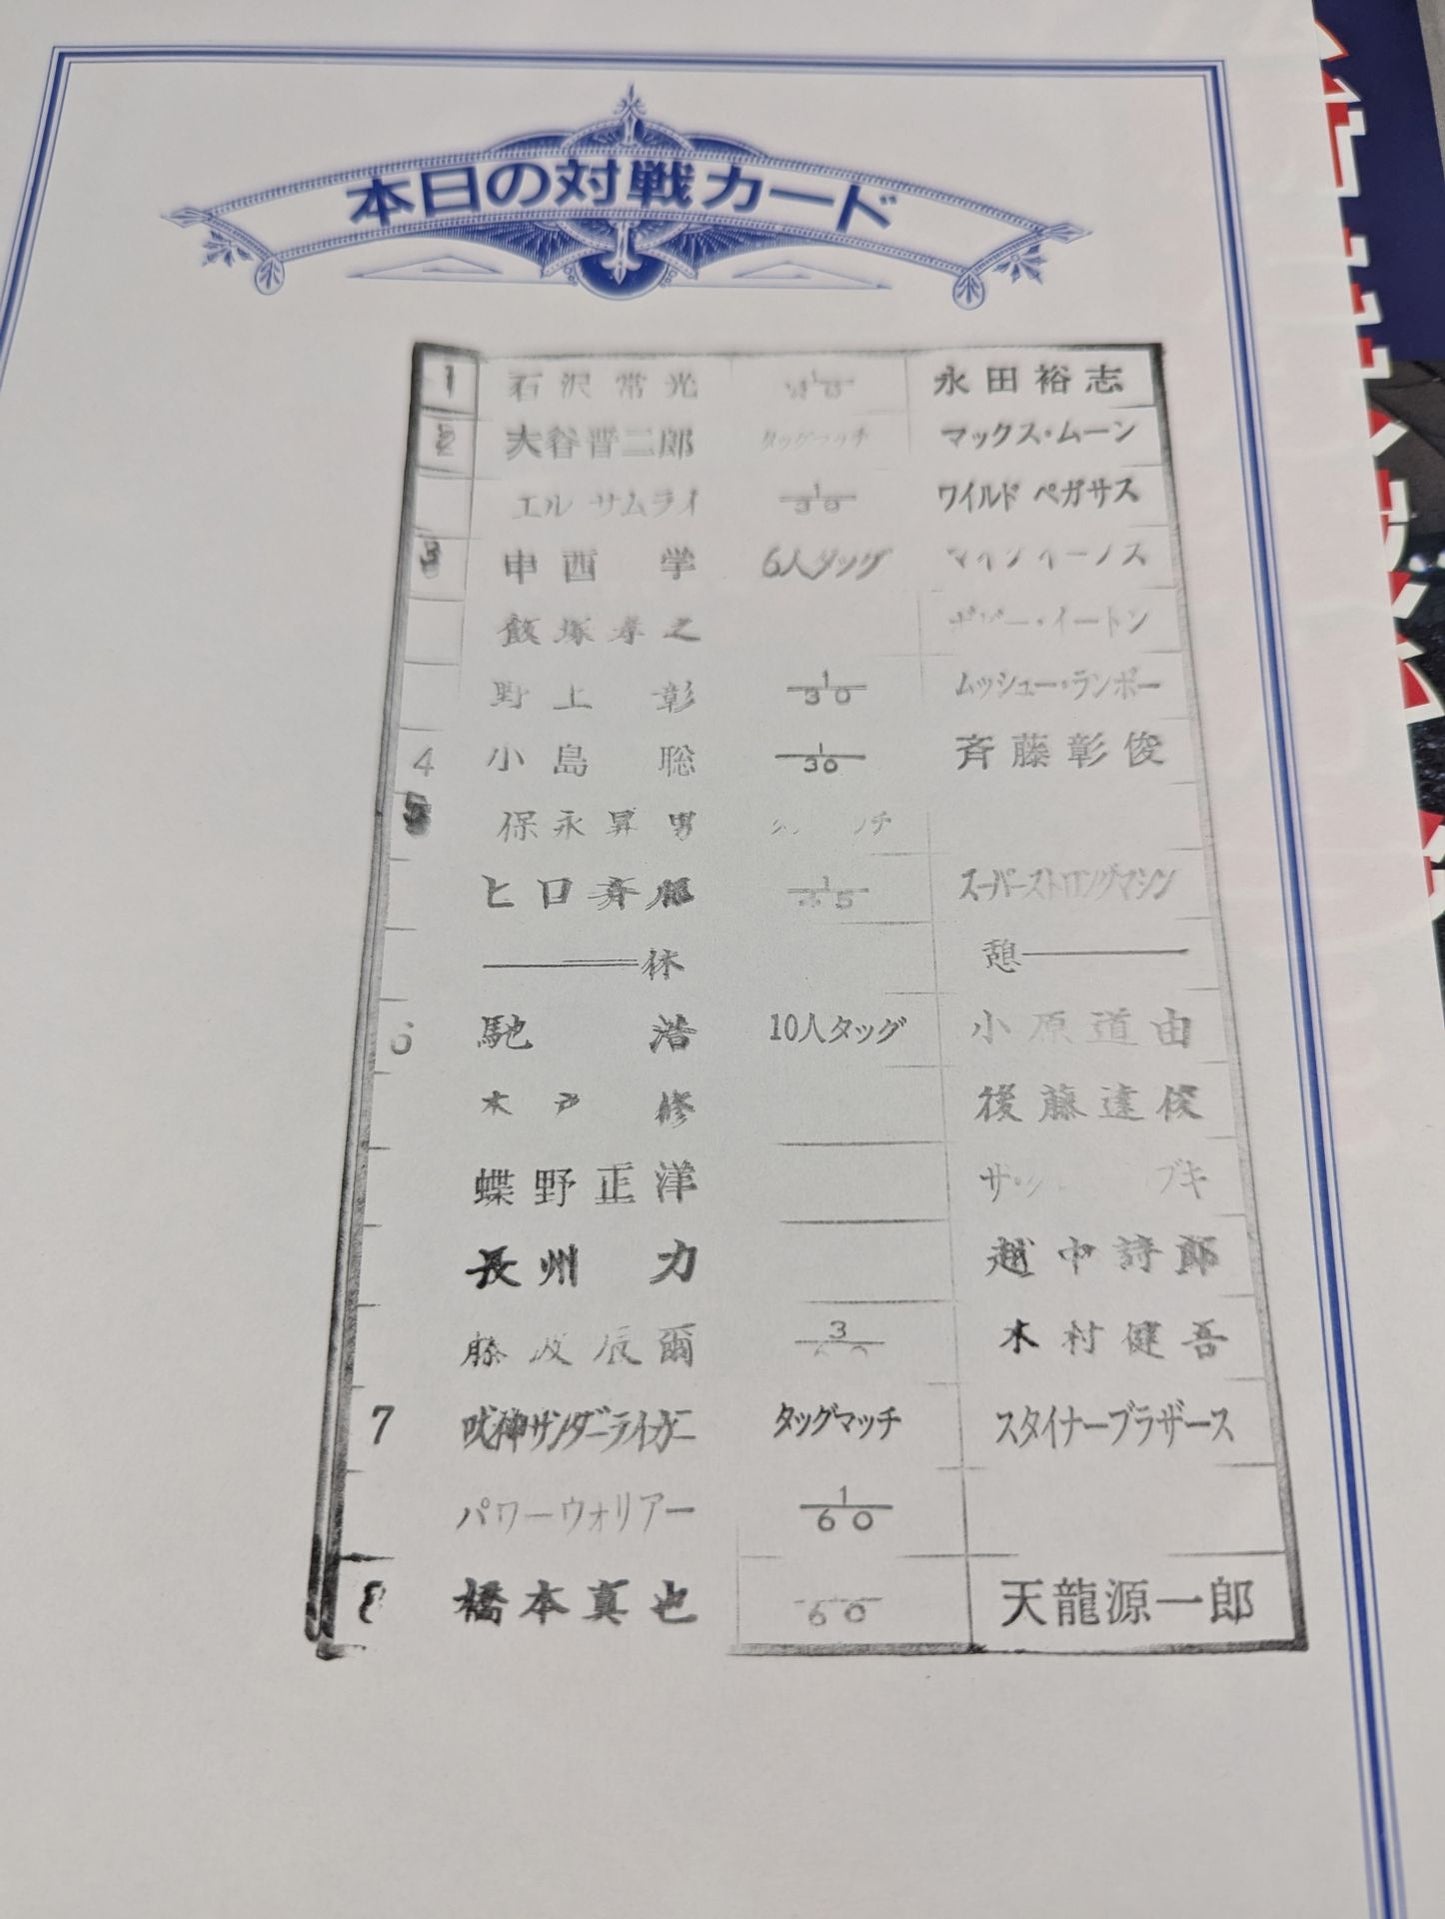 本日の対戦カード
1 石沢常光 永田裕志
2 大谷晋二郎 タッグマッチ マックス・ムーン
エル サムライ 1/30 ワイルド ペガサス
3 申西 学 6人タッグ
飯塚孝之 ボビー・イートン
野上 彰 1/30 ムッシュー・ランボー
4 小島 聡 1/30 斉藤彰俊
5 保永昇男
ヒロ斉藤 スーパーストロングマシン
休 憩
6 馳 浩 10人タッグ 小原道由
木戸 修 後藤達俊
蝶野正洋
長州 力 越中詩郎
藤波辰爾 3 木村健吾
7 獣神サンダーライガー タッグマッチ スタイナーブラザース
パワーウォリアー 1/60
8 橋本真也 60 天龍源一郎